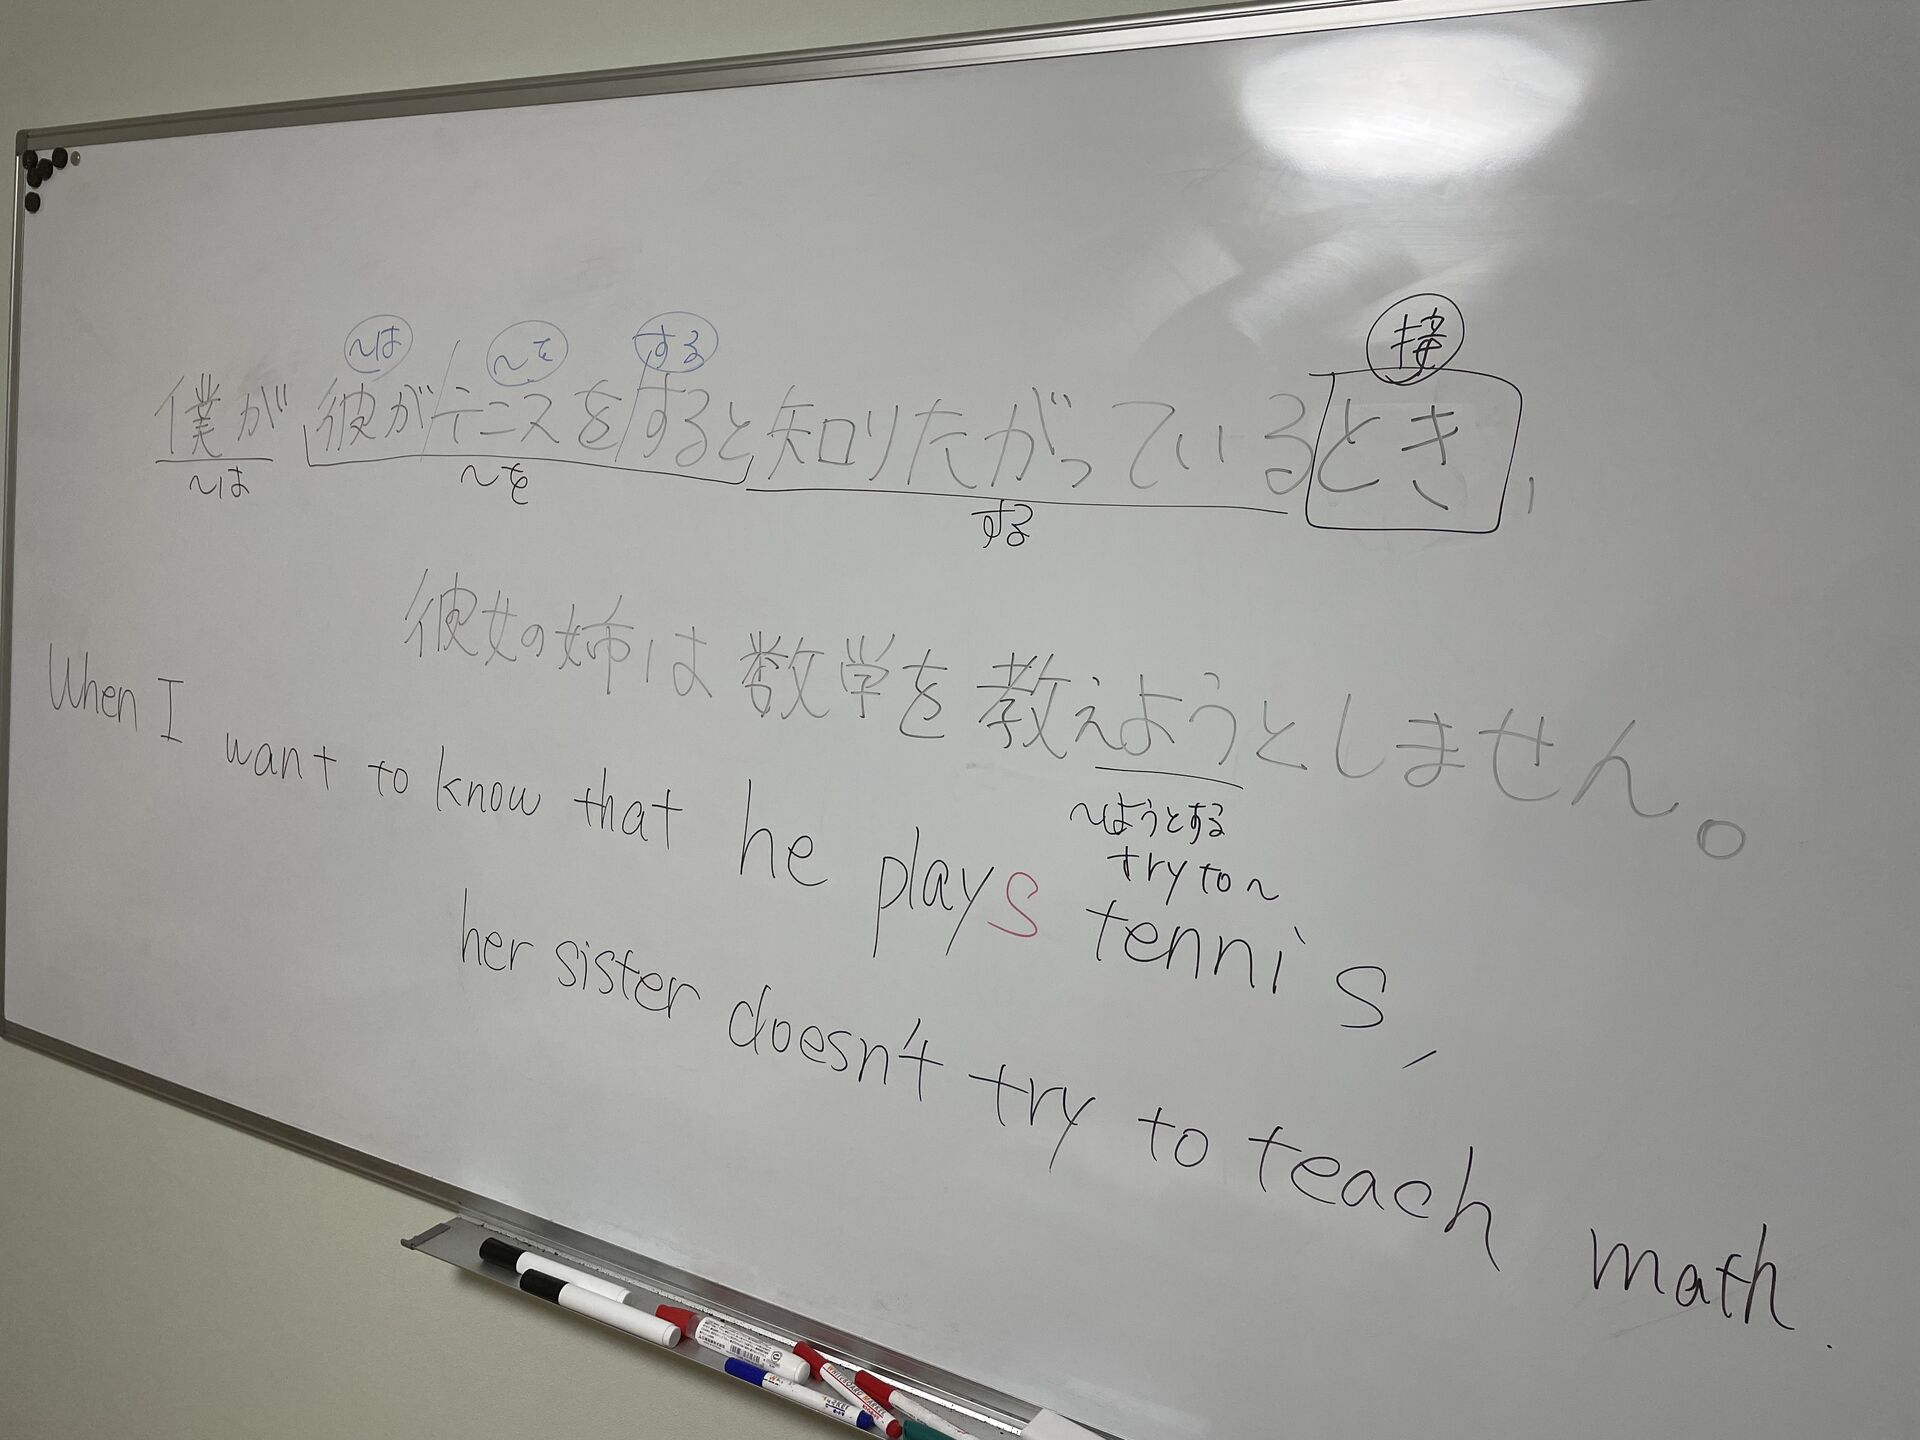 ～は ～を する 接
僕が彼がテニスをすると知りたがっているとき,
～は ～を する
彼女の姉は数学を教えようとしません。
～ようとする
try to ～
When I want to know that he plays tennis,
her sister doesn't try to teach math.
WHITEBOARD MARKER